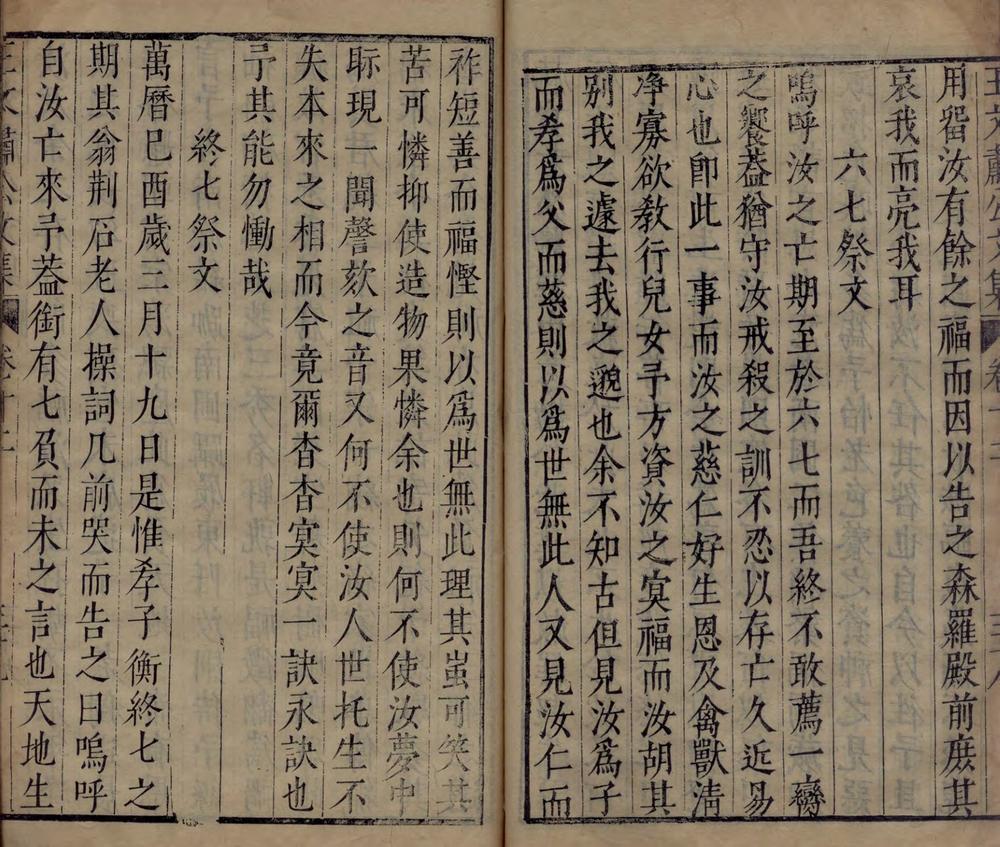 用留汝有餘之福而因以告之森羅殿前庶其
哀我而亮我耳
六七祭文
嗚呼汝之亡期至於六七而吾終不敢薦一臠
之饗葢猶守汝戒殺之訓不忍以存亡久近易
心也卽此一事而汝之慈仁好生恩及禽獸淸
净寡欲教行兒女予方資汝之冥福而汝胡其
别我之遽去我之邈也余不知古但見汝爲子
而孝爲父而慈則以爲世無此人又見汝仁而
祚短善而福慳則以爲世無此理其蚩可笑其
苦可憐抑使造物果憐余也則何不使汝夢中
眎現一聞謦欬之音又何不使汝人世托生不
失本來之相而今竟爾杳杳冥冥一訣永訣也
予其能勿慟哉
終七祭文
萬曆巳酉歲三月十九日是惟孝子衡終七之
期其翁荆石老人操詞几前哭而告之曰嗚呼
自汝亡來予葢銜有七負而未之言也天地生